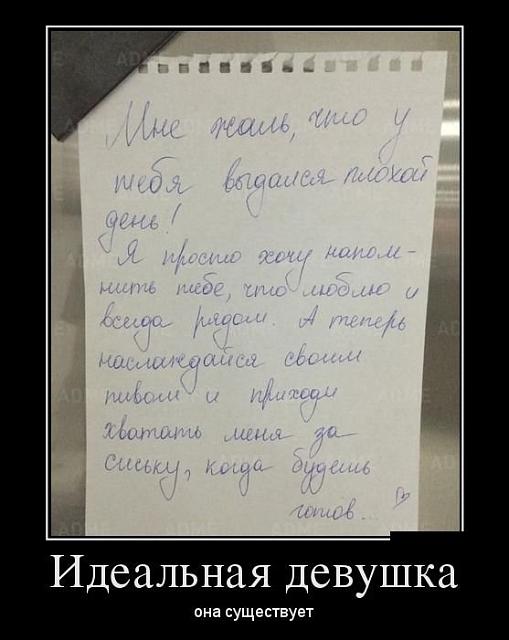 Мне жаль, что у
тебя выдался плохой
день!
Я просто хочу напом-
нить тебе, что люблю и
всегда рядом. А теперь
наслаждайся своим
пивом и приходи
хватать меня за
сиську, когда будешь
готов...
Идеальная девушка
она существует